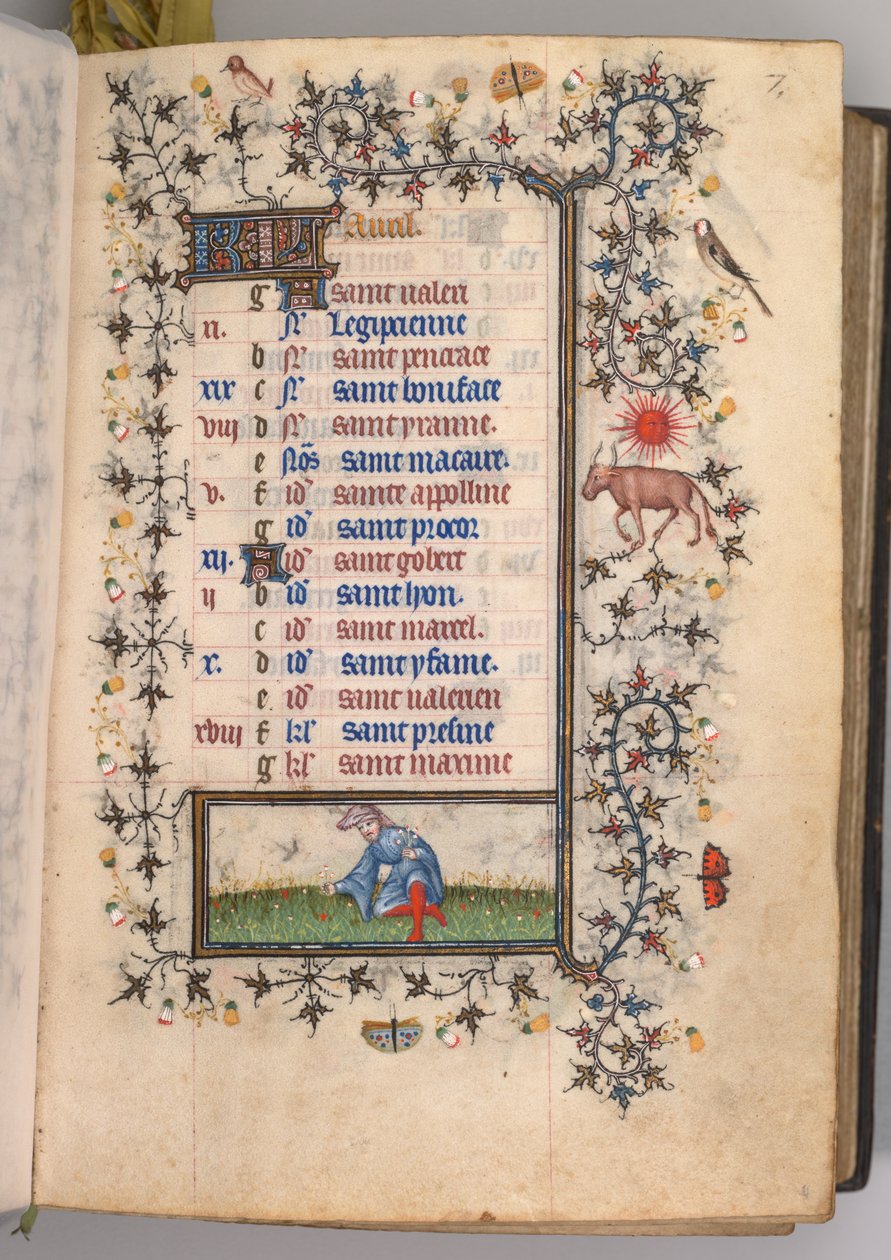 7.
KL Auril.
g A saint ualeri
xi. N' Legipcienne
b N' saint pencrace
xix c N' saint boniface
viij d N' saint yranne.
e Nōs saint macaire.
v. f id' sainte appolline
g id' saint procor
xij. A id' saint gobert
ij b id' saint lyon.
c id' saint marcel.
x. d id' saint yfame.
e. id' saint ualerien
xviij f kl' saint presine
g kl' saint maxime